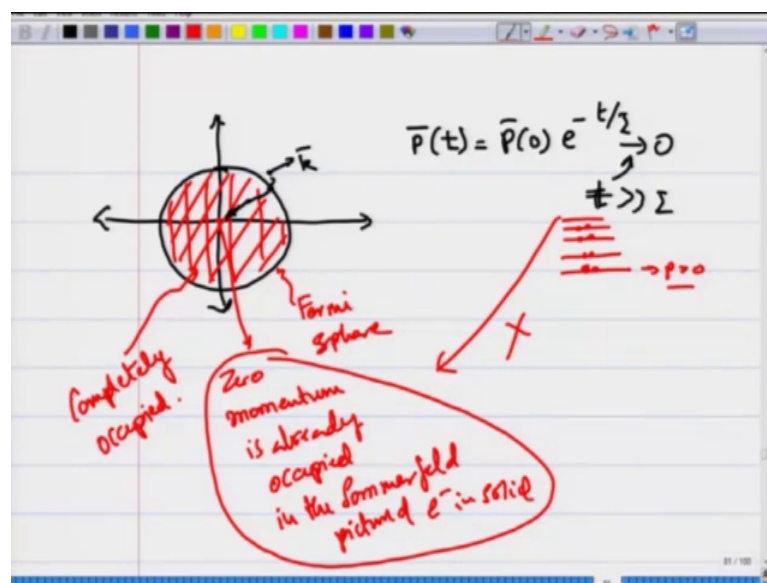 p̄(t) = p̄(0) e^{-t/Σ} → 0
t >> Σ
k̄
→ p=0
Fermi
sphere
Completely
occupied.
Zero
momentum
is already
occupied
in the Sommerfeld
picture of e⁻ in solid
81 / 100